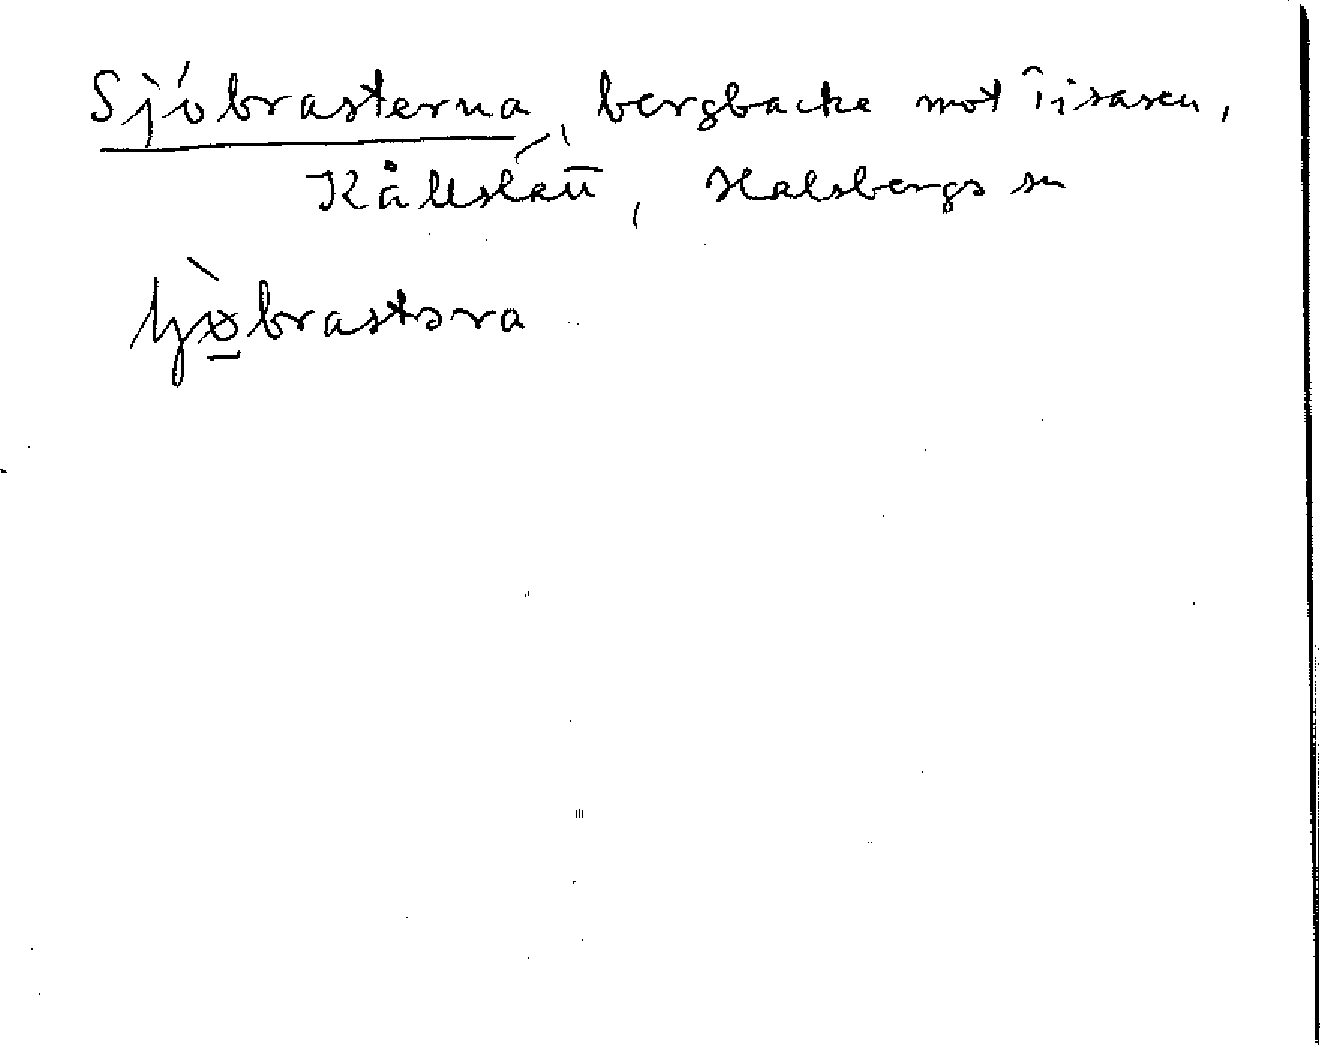 Sjöbrasterna, bergbacke mot Tisaren,
Kållslätt, Halsbergs sn
brastəra